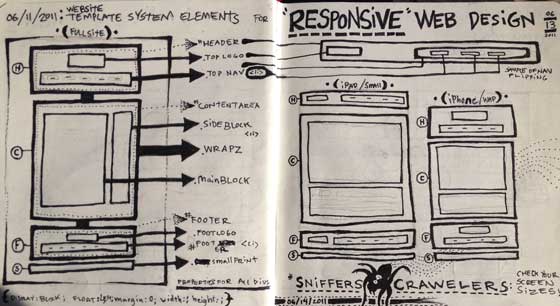 06/11/2011: WEBSITE
TEMPLATE SYSTEM ELEMENTS FOR
(FULLSITE)
"HEADER
.TOPLOGO
.TOP NAV
H
#CONTENTAREA
.SIDEBLOCK
.WRAPZ
C
.MainBLOCK
#FOOTER
.FOOTLOGO
F
S
SMALLPRINT
PROPERTIES FOR ALL DIVS
{DISPLAY: BLOCK; FLOAT: left; margin: 0; width: ; height: ; }
"RESPONSIVE" WEB DESIGN
06
13
2011
SAMPLE OF NAV
FLIPPING
(iPAD/SMALL)
(iPhone/WAP)
H
H
C
C
F
F
S
S
"SNIFFERS CRAWELERS:
CHECK YOUR
SCREEN
SIZES
06/14/2011